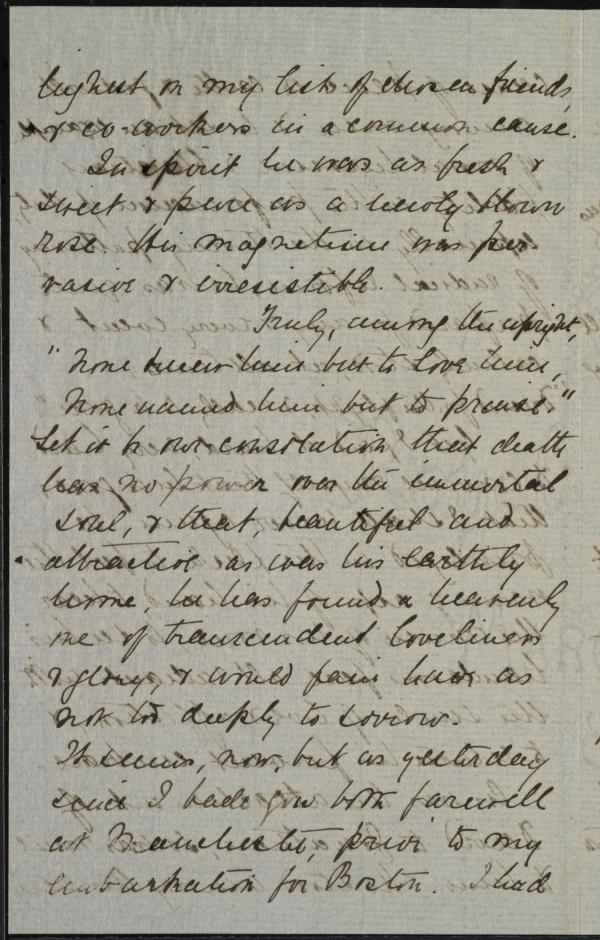 highest on my list of chosen friends,
& co-workers in a common cause.
In spirit he was as fresh &
sweet & pure as a newly blown
rose. His magnetism was per-
vasive & irresistible.
Truly, among the upright,
"None knew him but to love him,
None named him but to praise."
Let it be our consolation that death
has no power over the immortal
soul, & that, beautiful and
attractive as was his earthly
home, he has found a heavenly
one of transcendent loveliness
& glory, & would fain have us
not too deeply to sorrow.
It seems, now, but as yesterday
since I bade you both farewell
at Manchester, prior to my
embarkation for Boston. I had